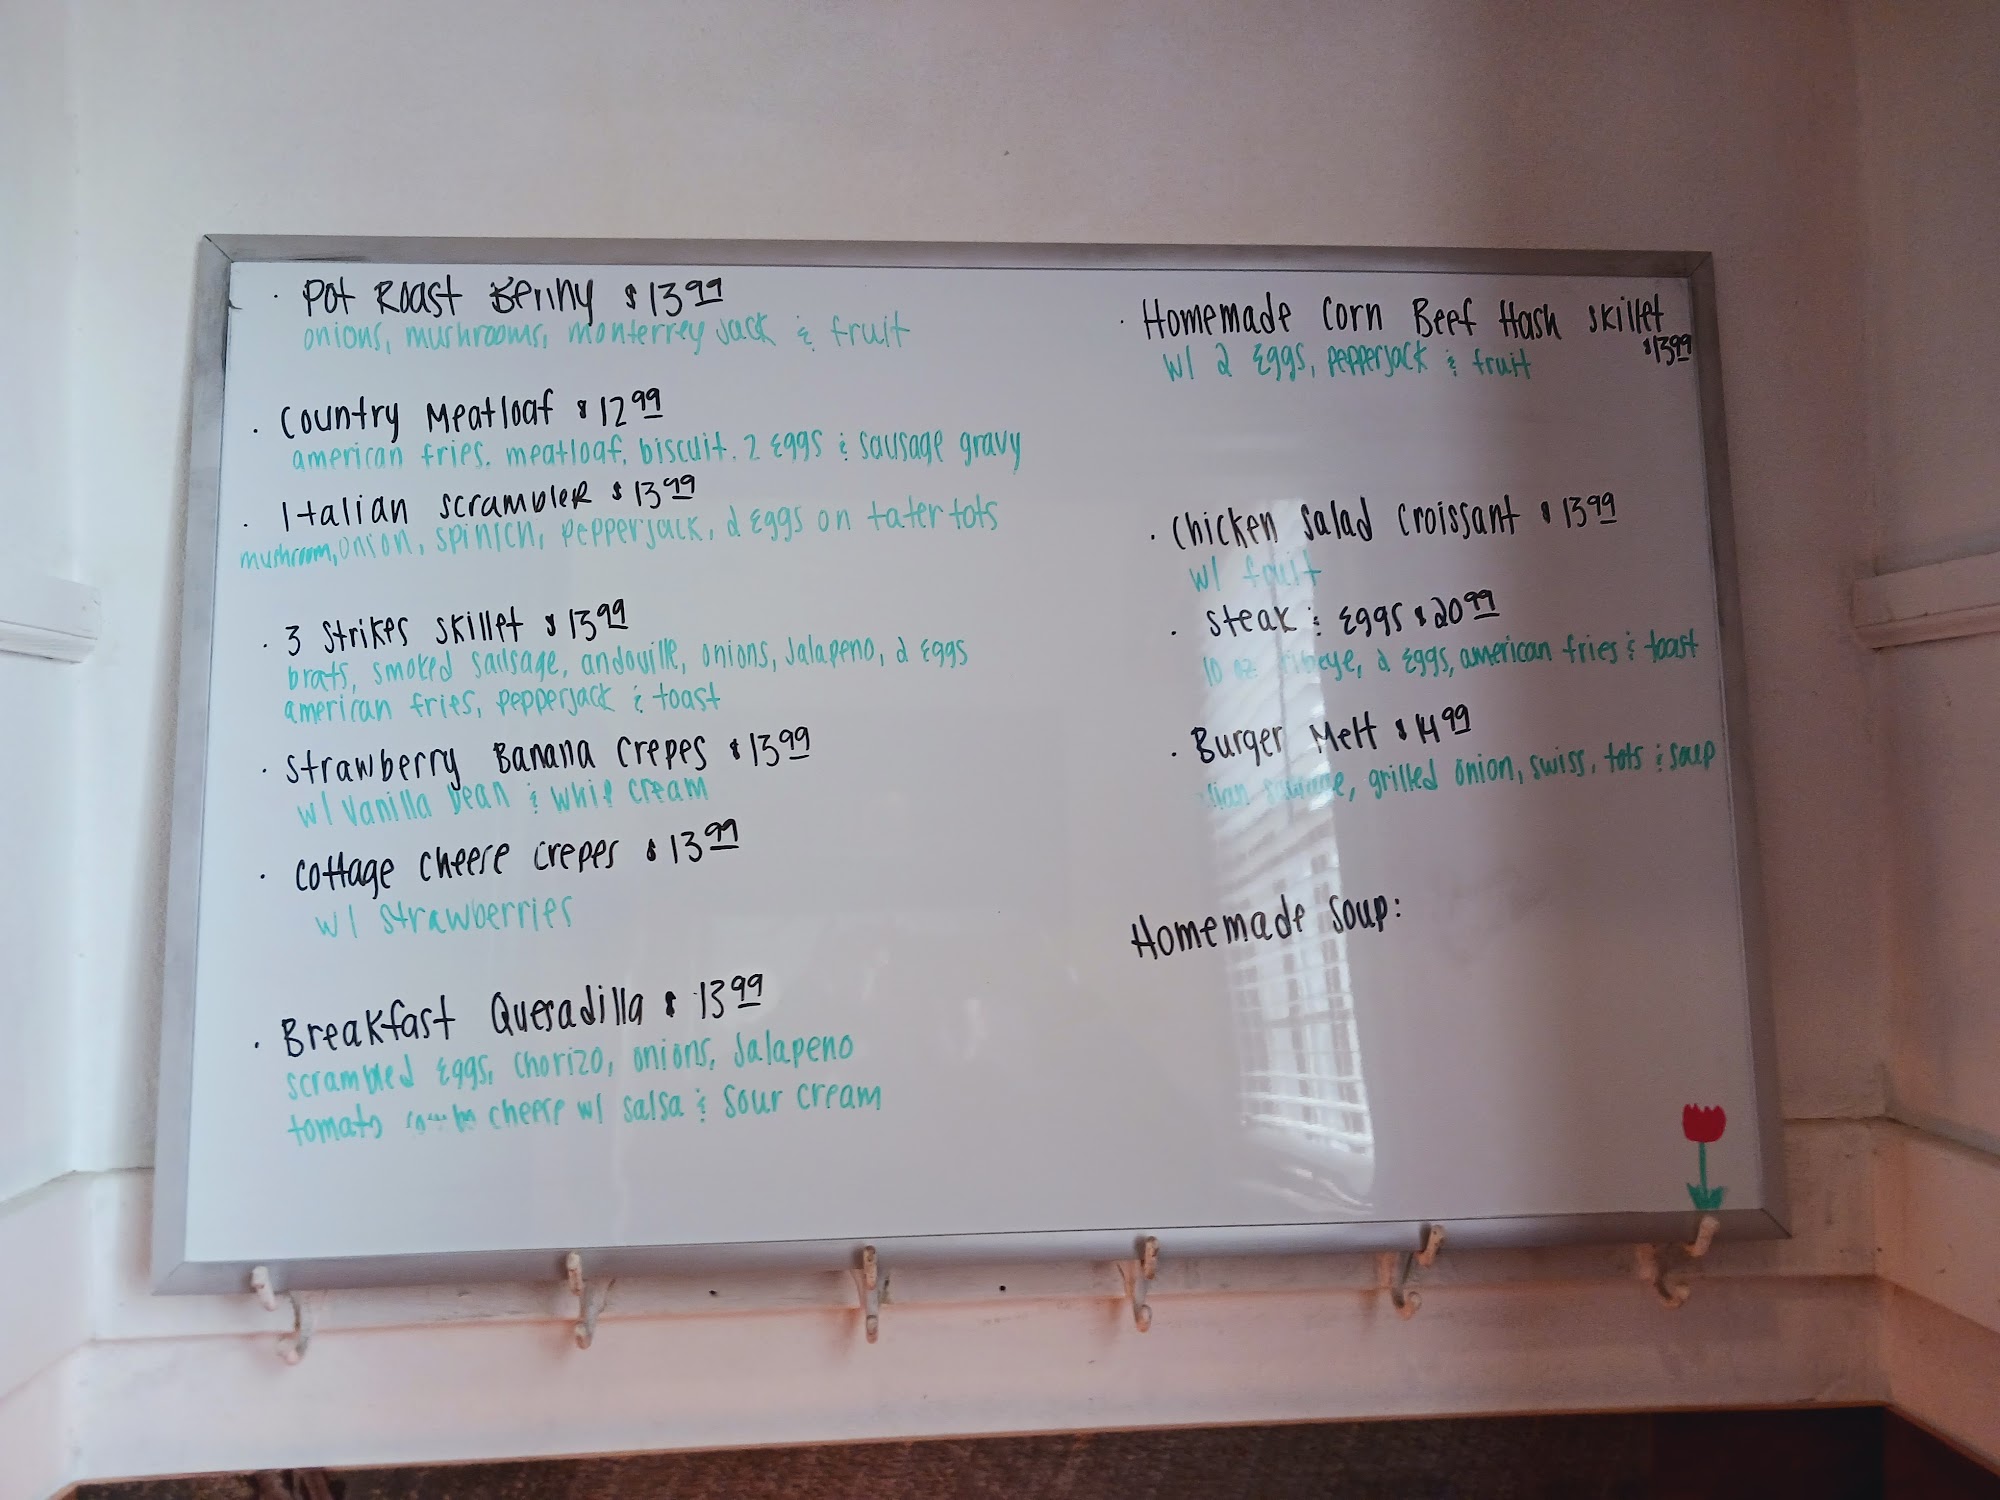 · Pot Roast Benny $13.99
onions, mushrooms, monterrey jack & fruit
· Country Meatloaf $12.99
american fries, meatloaf, biscuit, 2 Eggs & sausage gravy
· Italian scrambler $13.99
mushroom, onion, spinich, pepperjack, 2 Eggs on tater tots
· 3 Strikes skillet $13.99
brats, smoked sausage, andouille, onions, Jalapeno, 2 Eggs
american fries, pepperjack & toast
· Strawberry Banana Crepes $13.99
w/ Vanilla bean & whip cream
· Cottage cheese crepes $13.99
w/ strawberries
· Breakfast Quesadilla $13.99
scrambled Eggs, chorizo, onions, Jalapeno
tomato cheese w/ salsa & sour cream
· Homemade Corn Beef Hash skillet
$13.99
w/ 2 Eggs, pepperjack & fruit
· Chicken salad Croissant $13.99
w/ fruit
· Steak & Eggs $20.99
10 oz ribeye, 2 Eggs, american fries & toast
· Burger Melt $14.99
sausage, grilled onion, swiss, tots & soup
Homemade Soup: